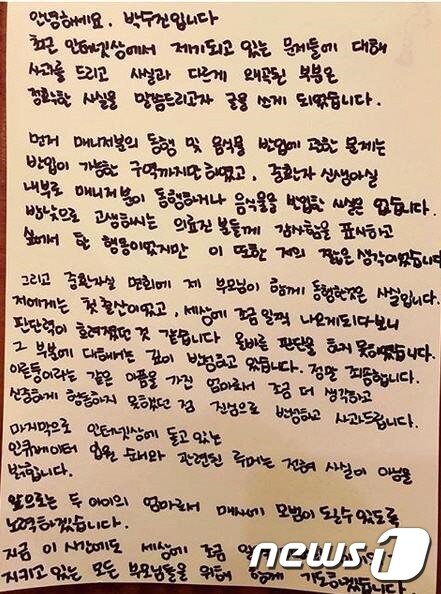 안녕하세요. 박수진입니다
최근 인터넷상에서 제기되고 있는 문제들에 대해
사과를 드리고 사실과 다르게 왜곡된 부분은
정확한 사실을 말씀드리고자 글을 쓰게 되었습니다.
먼저 매니저분의 동행 및 음식물 반입에 관한 문제는
반입이 가능한 구역까지만 하였고, 중환자 신생아실
내부로 매니저분이 동행하거나 음식물을 반입한 사실은 없습니다.
밤낮으로 고생하시는 의료진 분들께 감사함을 표시하고
싶어서 한 행동이었지만 이 또한 저의 짧은 생각이었습니다
그리고 중환자실 면회에 제 부모님이 함께 동행한것은 사실입니다.
저에게는 첫 출산이었고, 세상에 조금 일찍 나오게되다보니
판단력이 흐려졌던 것 같습니다 올바른 판단을 하지 못하였습니다.
그 부분에 대해서는 깊이 반성하고 있습니다. 정말 죄송합니다.
이른둥이라는 같은 아픔을 가진 엄마로서 조금 더 생각하고
신중하게 행동하지 못했던 점 진심으로 반성하고 사과드립니다.
마지막으로 인터넷상에 돌고 있는
인큐베이터 입원 순서와 관련된 루머는 전혀 사실이 아님을
밝힙니다.
앞으로는 두 아이의 엄마로서 매사에 모범이 될수 있도록
노력하겠습니다.
지금 이 시간에도 세상에 조금
지키고 있는 모든 부모님들을 위해 함께 기도하겠습니다.
news1